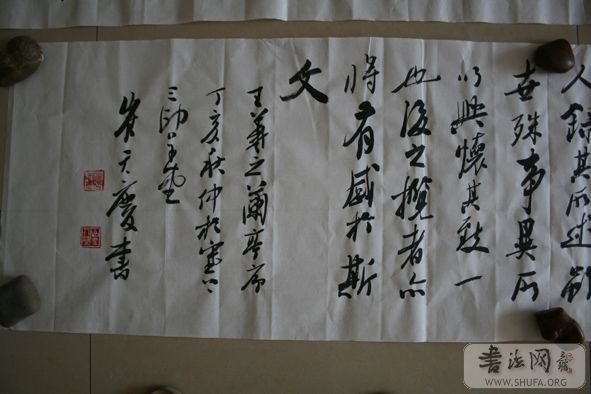 人錄其所述雖
世殊事異所
以興懷其致一
也後之攬者亦
將有感於斯
文
王羲之蘭亭序
丁亥秋仲於
崔天慶書
書法网
WWW.SHUFA.ORG